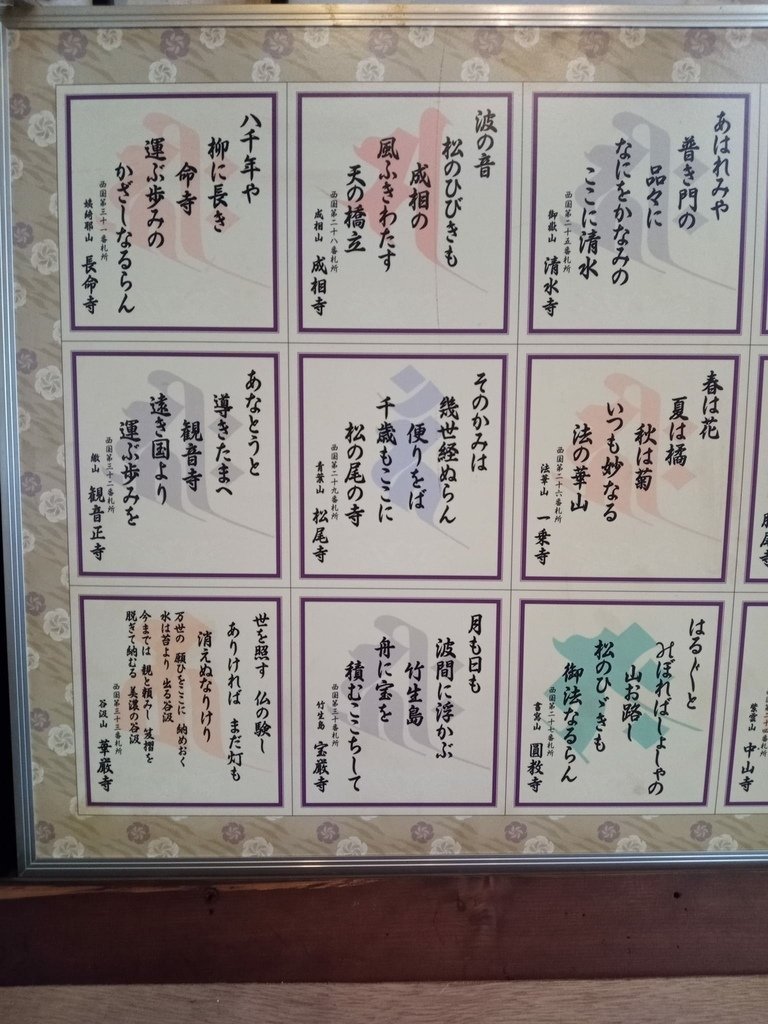 紫雲山 中山寺
あはれみや
普き門の
品々に
なにをかなみの
ここに清水
西国第二十五番札所
御嶽山 清水寺
春は花
夏は橘
秋は菊
いつも妙なる
法の華山
西国第二十六番札所
法華山 一乗寺
はる〲と
のぼればしょしゃの
山お路し
松のひゞきも
御法なるらん
西国第二十七番札所
書寫山 圓教寺
波の音
松のひびきも
成相の
風ふきわたす
天の橋立
西国第二十八番札所
成相山 成相寺
そのかみは
幾世経ぬらん
便りをば
千歳もここに
松の尾の寺
西国第二十九番札所
青葉山 松尾寺
月も日も
波間に浮かぶ
竹生島
舟に宝を
積むここちして
西国第三十番札所
竹生島 宝厳寺
八千年や
柳に長き
命寺
運ぶ歩みの
かざしなるらん
西国第三十一番札所
姨綺耶山 長命寺
あなとうと
導きたまへ
観音寺
遠き国より
運ぶ歩みを
西国第三十二番札所
繖山 観音正寺
世を照す 仏の験し
ありければ まだ灯も
消えぬなりけり
万世の 願ひをここに 納めおく
水は苔より 出る谷汲
今までは 親と頼みし 笈摺を
脱ぎて納むる 美濃の谷汲
西国第三十三番札所
谷汲山 華厳寺